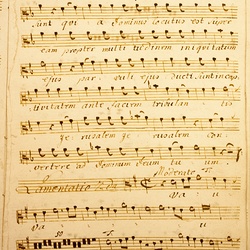 sunt qui a Dominus locutus est super
eam propter multitudinem iniquitatum
ejus par vuli ejus ducti sunt in cap
tivitatem ante faciem tribulan tis
je rusalem je rusalem con
vertere ad Dominum Deum tu um
Moderato
Lamentatio 2da
Va u
Va u